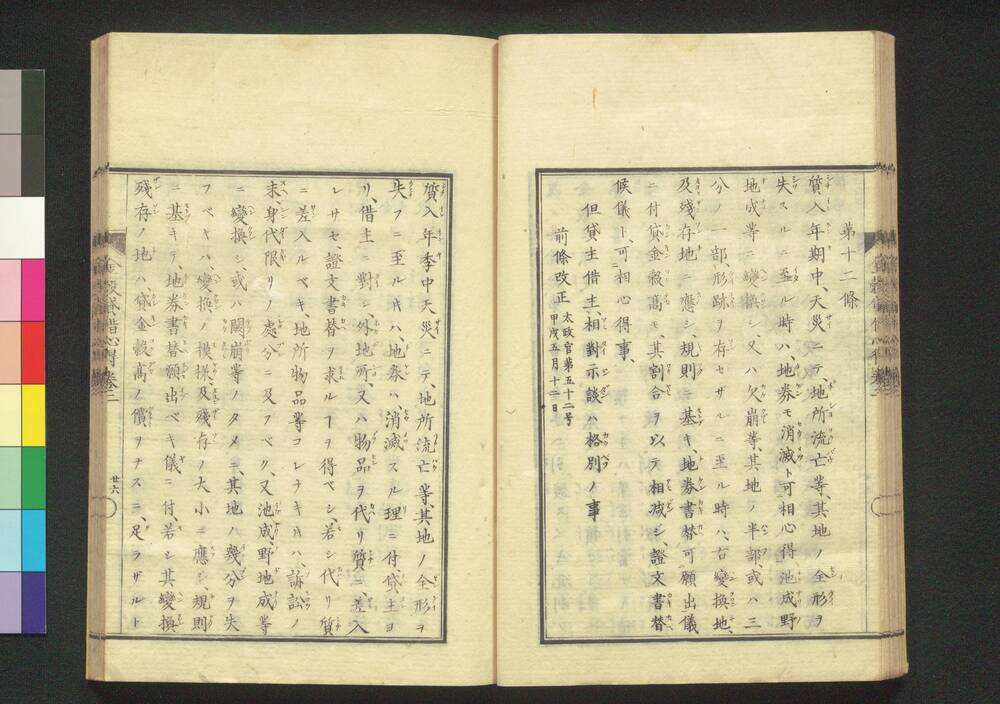 第十二條
質入年期中、天災ニテ地所流亡等、其地ノ全形ヲ
失スルニ至ル時ハ、地券モ消滅ト可相心得池成野
地成等ニ變換シ、又ハ欠崩等、其地ノ半部、或ハ三
分ノ一部、形跡ヲ存セザルニ至ル時ハ、右變換地、
及殘存地ニ應シ規則ニ基キ、地券書替可願出儀
ニ付貸金穀高モ、其割合ヲ以テ相减シ、證文書替
候儀ト、可相心得事、
但貸主借主、相對示談ハ格別ノ事
前條改正 太政官第五十二号
甲戌五月十二日
質入年季中天災ニテ、地所流亡等、其地ノ全形ヲ
失フニ至ル片ハ、地券ハ消滅スル理ニ付、貸主ヨ
リ、借主ニ對シ、外地所、又ハ物品ヲ代リ質ニ差入
レサセ、證文書替ヲ求ルヿヲ得ベシ若シ代リ質
ニ差入ルベキ、地所物品等コレナキ片ハ、訴訟ノ
末、身代限リノ處分ニ及フベク、又池成、野地成等
ニ變換シ或ハ闕崩等ノタメニ、其地ハ幾分ヲ失
フベキハ、變換ノ模様、及殘存ノ大小ニ應シ規則
ニ基キテ、地券書替願出ベキ儀ニ付、若シ其變換
殘存ノ地ハ、貸金穀高ノ償ヲナスニ、足ラザルト
廿六